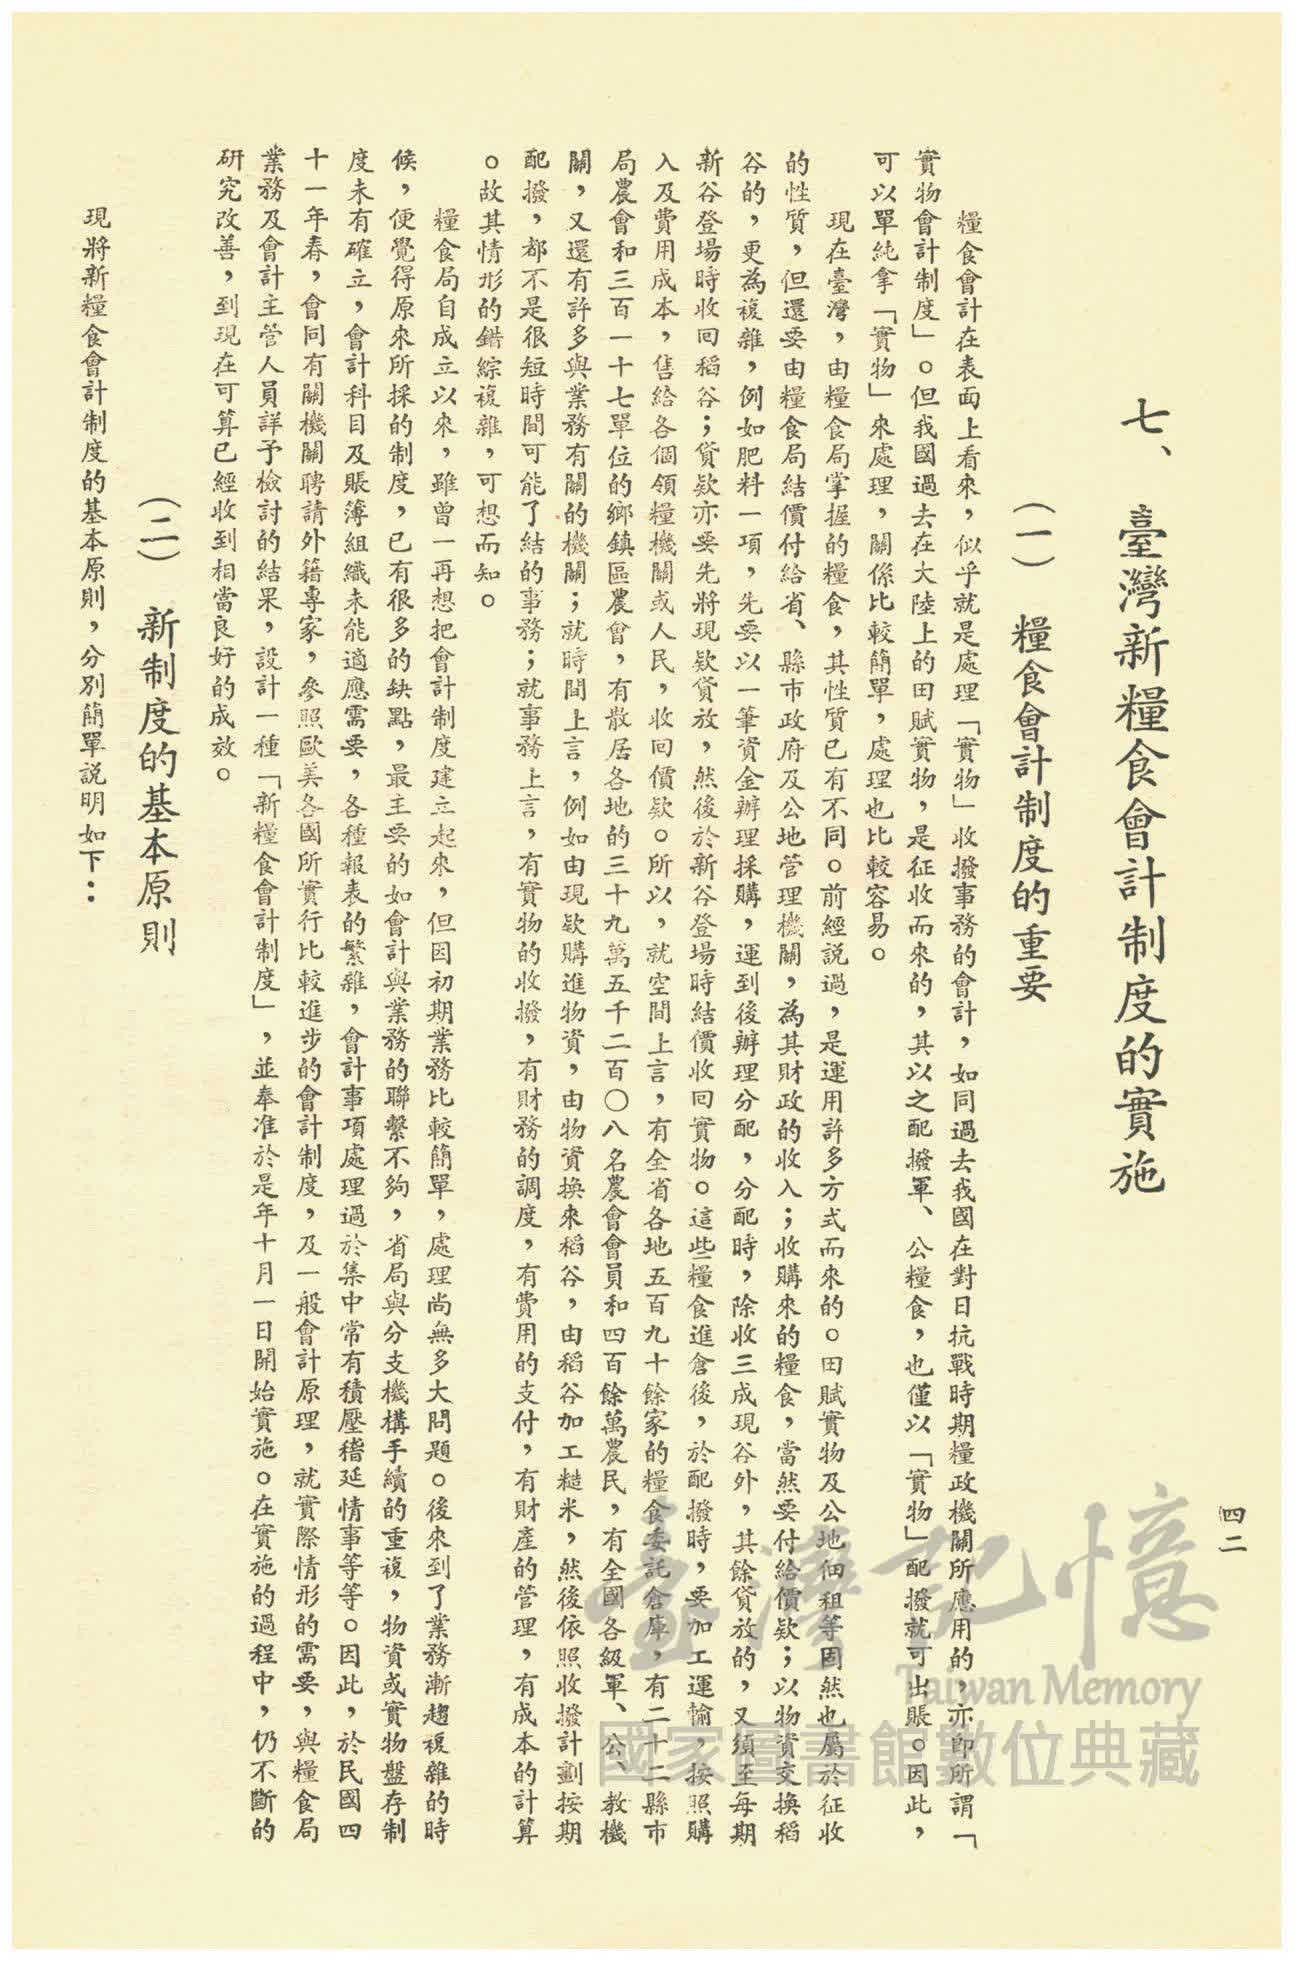 四二
七、臺灣新糧食會計制度的實施
（一）糧食會計制度的重要
糧食會計在表面上看來，似乎就是處理「實物」收撥事務的會計，如同過去我國在對日抗戰時期糧政機關所應用的，亦即所謂「
實物會計制度」。但我國過去在大陸上的田賦實物，是征收而來的，其以之配撥軍、公糧食，也僅以「實物」配撥就可出賬。因此，
可以單純拿「實物」來處理，關係比較簡單，處理也比較容易。
現在臺灣，由糧食局掌握的糧食，其性質已有不同。前經說過，是運用許多方式而來的。田賦實物及公地佃租等固然也屬於征收
的性質，但還要由糧食局結價付給省、縣市政府及公地管理機關，為其財政的收入；收購來的糧食，當然要付給價欵；以物資交換稻
谷的，更為複雜，例如肥料一項，先要以一筆資金辦理採購，運到後辦理分配，分配時，除收三成現谷外，其餘貸放的，又須至每期
新谷登場時收回稻谷；貸欵亦要先將現欵貸放，然後於新谷登場時結價收回實物。這些糧食進倉後，於配撥時，要加工運輸，按照購
入及費用成本，售給各個領糧機關或人民，收回價欵。所以，就空間上言，有全省各地五百九十餘家的糧食委託倉庫，有二十二縣市
局農會和三百一十七單位的鄉鎮區農會，有散居各地的三十九萬五千二百〇八名農會會員和四百餘萬農民，有全國各級軍、公、教機
關，又還有許多與業務有關的機關；就時間上言，例如由現欵購進物資，由物資換來稻谷，由稻谷加工糙米，然後依照收撥計劃按期
配撥，都不是很短時間可能了結的事務；就事務上言，有實物的收撥，有財務的調度，有費用的支付，有財產的管理，有成本的計算
。故其情形的錯綜複雜，可想而知。
糧食局自成立以來，雖曾一再想把會計制度建立起來，但因初期業務比較簡單，處理尚無多大問題。後來到了業務漸趨複雜的時
候，便覺得原來所採的制度，已有很多的缺點，最主要的如會計與業務的聯繫不夠，省局與分支機構手續的重複，物資或實物盤存制
度未有確立，會計科目及賬簿組織未能適應需要，各種報表的繁雜，會計事項處理過於集中常有積壓稽延情事等等。因此，於民國四
十一年春，會同有關機關聘請外籍專家，參照歐美各國所實行比較進步的會計制度，及一般會計原理，就實際情形的需要，與糧食局
業務及會計主管人員詳予檢討的結果，設計一種「新糧食會計制度」，並奉准於是年十月一日開始實施。在實施的過程中，仍不斷的
研究改善，到現在可算已經收到相當良好的成效。
（二）新制度的基本原則
現將新糧食會計制度的基本原則，分別簡單說明如下：
臺灣記憶
Taiwan Memory
國家圖書館數位典藏